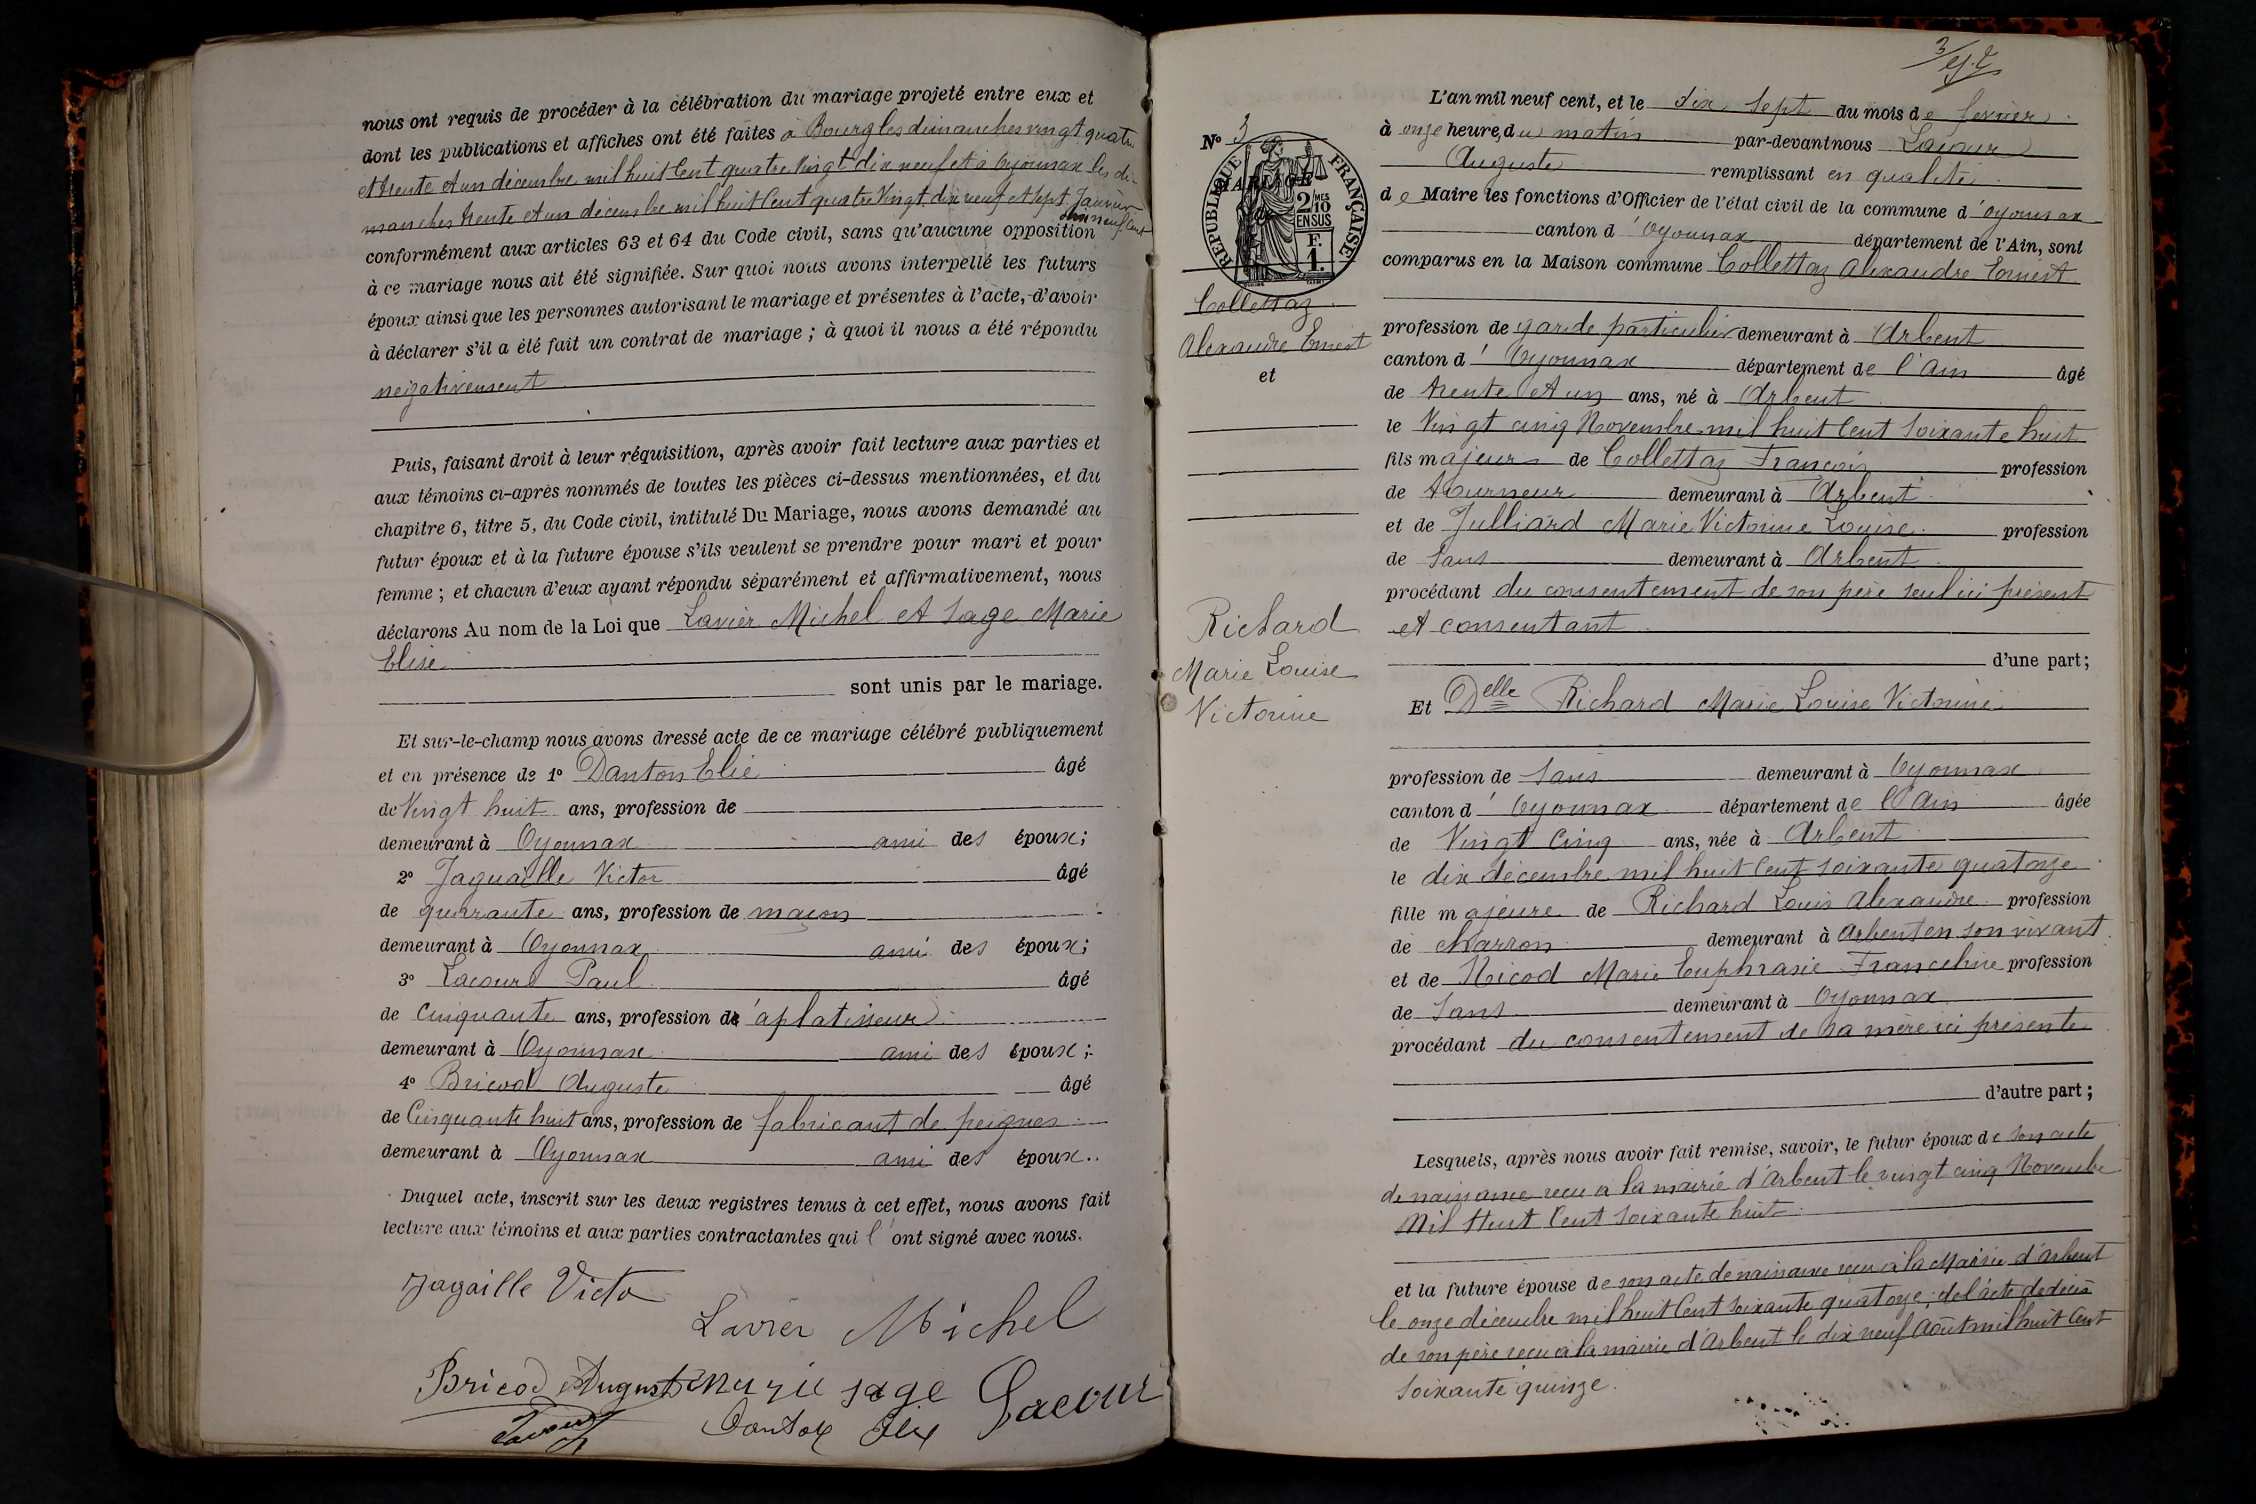 nous ont requis de procéder à la célébration du mariage projeté entre eux et
dont les publications et affiches ont été faites à Bourg les dimanches vingt quatre
et trente et un décembre mil huit Cent quatre Vingt dix neuf et à Oyonnax les di-
manches trente et un décembre mil huit Cent quatre Vingt dix neuf et sept Janvier
neuf Cent
conformément aux articles 63 et 64 du Code civil, sans qu'aucune opposition
à ce mariage nous ait été signifiée. Sur quoi nous avons interpellé les futurs
époux ainsi que les personnes autorisant le mariage et présentes à l'acte, d'avoir
à déclarer s'il a été fait un contrat de mariage ; à quoi il nous a été répondu
négativement
Puis, faisant droit à leur réquisition, après avoir fait lecture aux parties et
aux témoins ci-après nommés de toutes les pièces ci-dessus mentionnées, et du
chapitre 6, titre 5, du Code civil, intitulé Du Mariage, nous avons demandé au
futur époux et à la future épouse s'ils veulent se prendre pour mari et pour
femme ; et chacun d'eux ayant répondu séparément et affirmativement, nous
déclarons Au nom de la Loi que Lavier Michel et Sage Marie
Elise
sont unis par le mariage.
Et sur-le-champ nous avons dressé acte de ce mariage célébré publiquement
et en présence de 1° Danton Elie âgé
de Vingt huit ans, profession de
demeurant à Oyonnax ami des époux ;
2° Jaguaille Victor âgé
de quarante ans, profession de maçon
demeurant à Oyonnax ami des époux ;
3° Lacour Paul âgé
de Cinquante ans, profession d'aplatisseur
demeurant à Oyonnax ami des époux ;
4° Bricod Auguste âgé
de Cinquante huit ans, profession de fabricant de peignes
demeurant à Oyonnax ami des époux.
Duquel acte, inscrit sur les deux registres tenus à cet effet, nous avons fait
lecture aux témoins et aux parties contractantes qui l'ont signé avec nous.
Jagaille Victo
Lavier Michel
Bricod Auguste marie sage Lacour
Danton Elie
3
N° 3
RÉPUBLIQUE FRANÇAISE
MARIAGE
2/10 MES
EN SUS
F.
1.
Collettaz
Alexandre Ernest
et
Richard
Marie Louise
Victorine
L'an mil neuf cent, et le dix sept du mois de février
à onze heures du matin par-devant nous Lacour
Auguste remplissant en qualité
de Maire les fonctions d'Officier de l'état civil de la commune d'Oyonnax
canton d'Oyonnax département de l'Ain, sont
comparus en la Maison commune Collettaz Alexandre Ernest
profession de garde particulier demeurant à Arbent
canton d'Oyonnax département de l'Ain âgé
de trente et un ans, né à Arbent
le Vingt cinq Novembre mil huit Cent Soixante huit
fils majeur de Collettaz François profession
de tourneur demeurant à Arbent
et de Julliard Marie Victorine Louise profession
de Sans demeurant à Arbent
procédant du consentement de son père seul ici présent
et consentant
d'une part ;
Et Delle Richard Marie Louise Victorine
profession de Sans demeurant à Oyonnax
canton d'Oyonnax département de l'Ain âgée
de Vingt Cinq ans, née à Arbent
le dix décembre mil huit Cent soixante quatorze
fille majeure de Richard Louis Alexandre profession
de charron demeurant à Arbent en son vivant
et de Nicod Marie Euphrasie Franceline profession
de Sans demeurant à Oyonnax
procédant du consentement de sa mère ici présente
d'autre part ;
Lesquels, après nous avoir fait remise, savoir, le futur époux de son acte
de naissance reçu à la mairie d'Arbent le vingt cinq Novembre
Mil Huit Cent Soixante huit
et la future épouse de son acte de naissance reçu à la Mairie d'Arbent
le onze décembre mil huit Cent soixante quatorze ; de l'acte de décès
de son père reçu à la mairie d'Arbent le dix neuf Août mil huit Cent
soixante quinze.